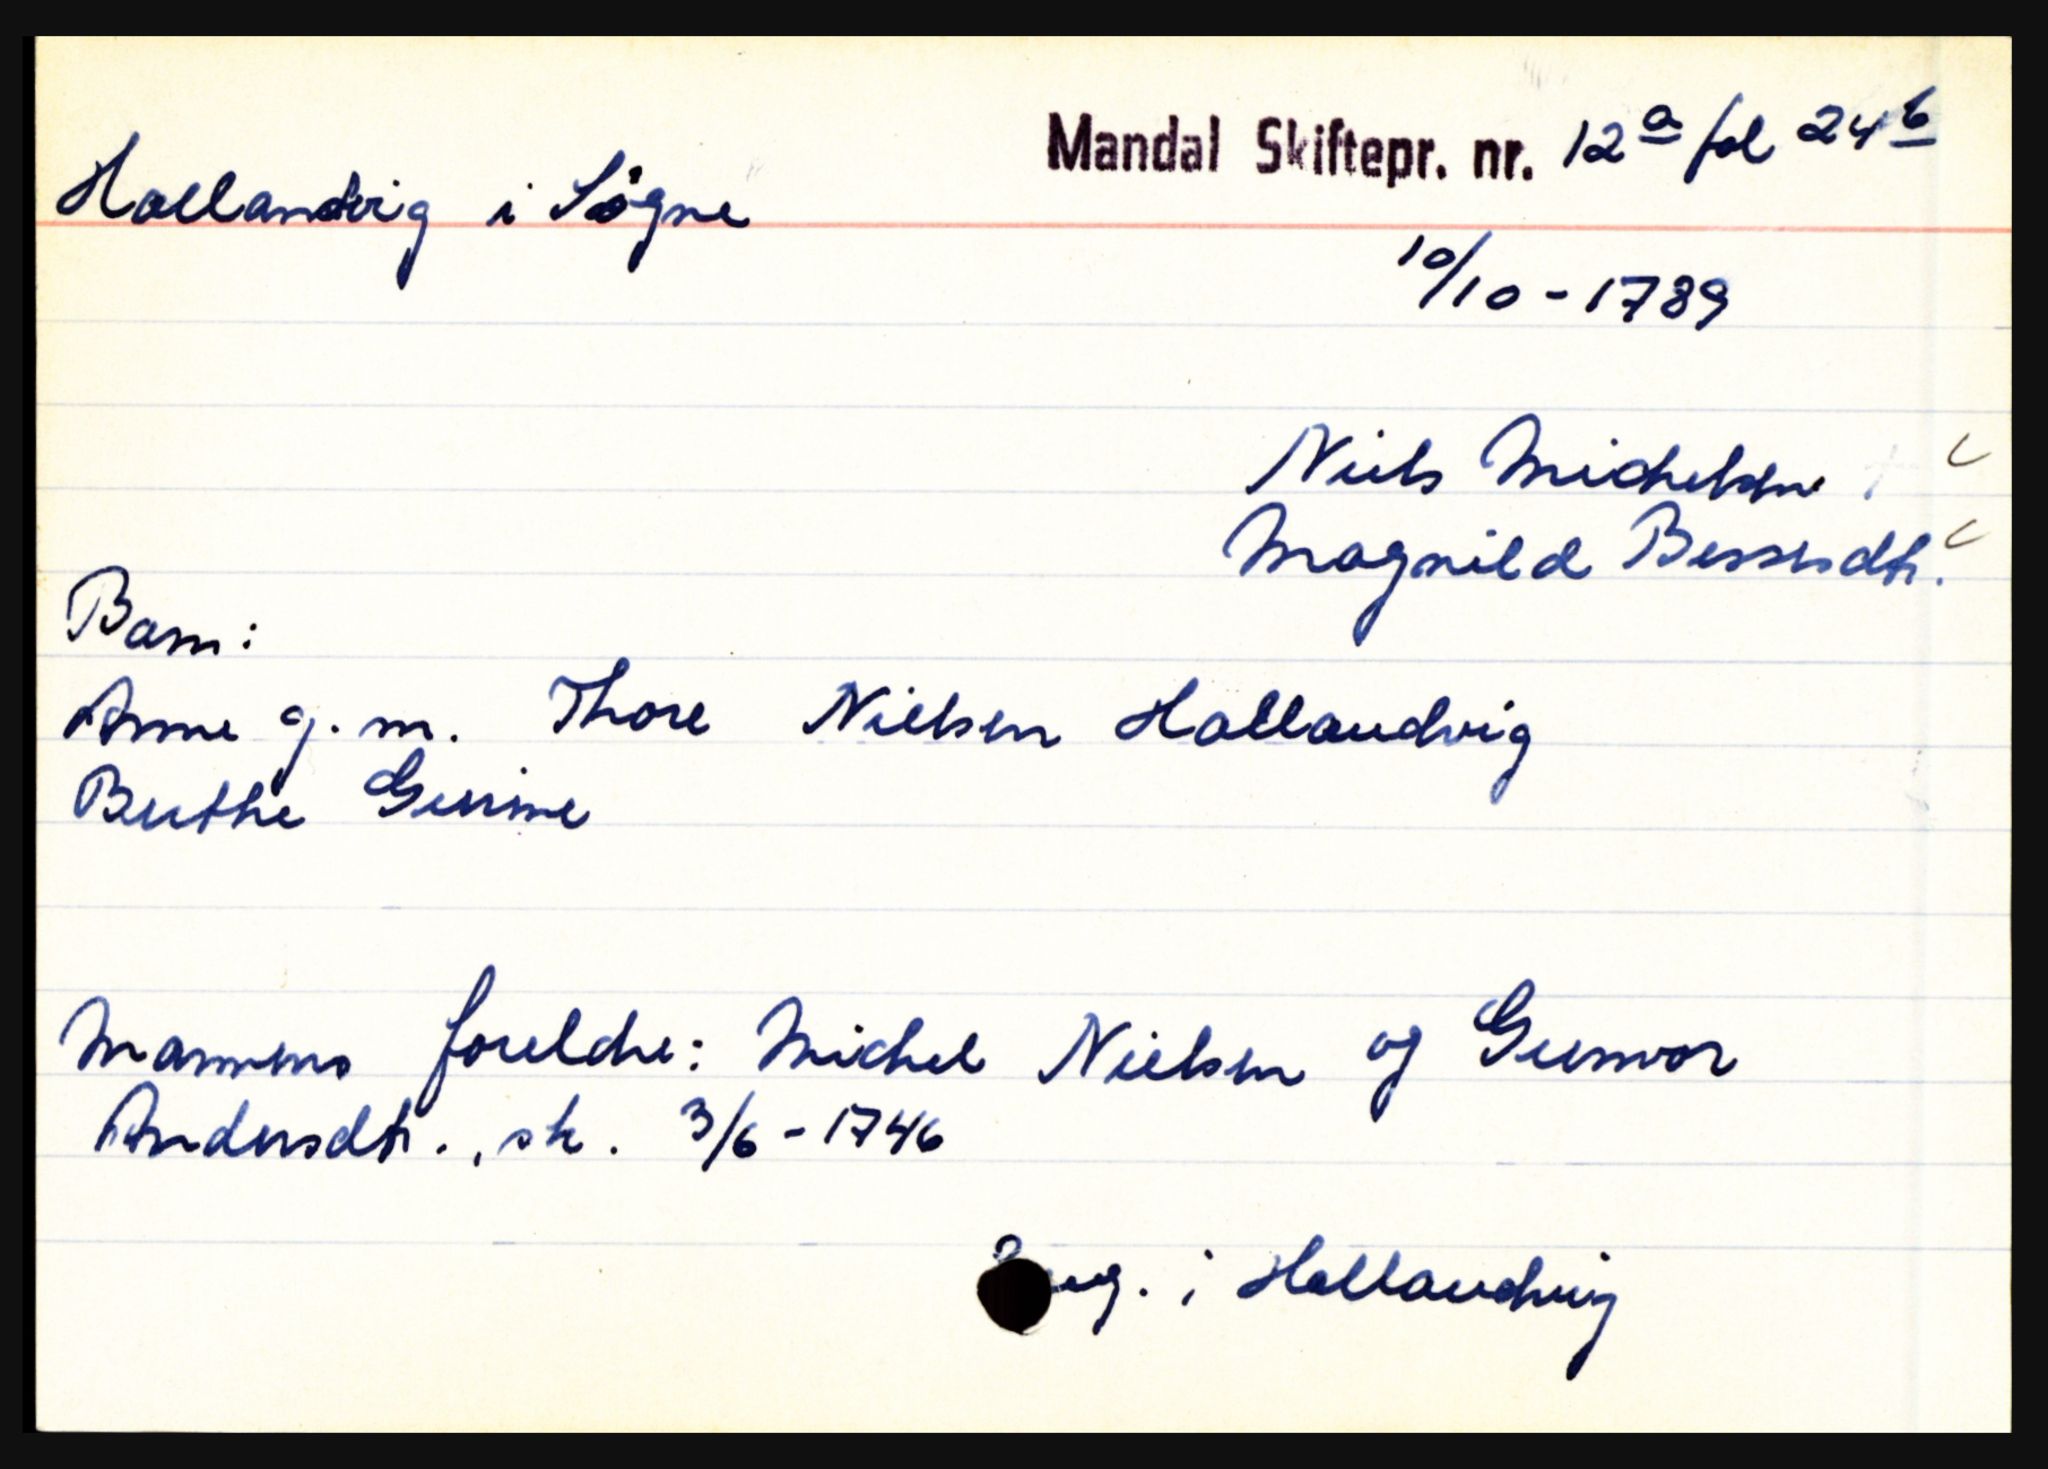 Mandal Skiftepr. nr. 12ª fol 24ᵇ
Hollandvig i Søgne
10/10 - 1789
Niels Michelsen
Magnild Bersesdtr.
Barn:
Anne g. m. Thore Nielsen Hollandvig
Berthe Gurine
Mannens foreldre: Michel Nielsen og Gunvor
Andersdtr., sk. 3/6 - 1746
i Hollandvig